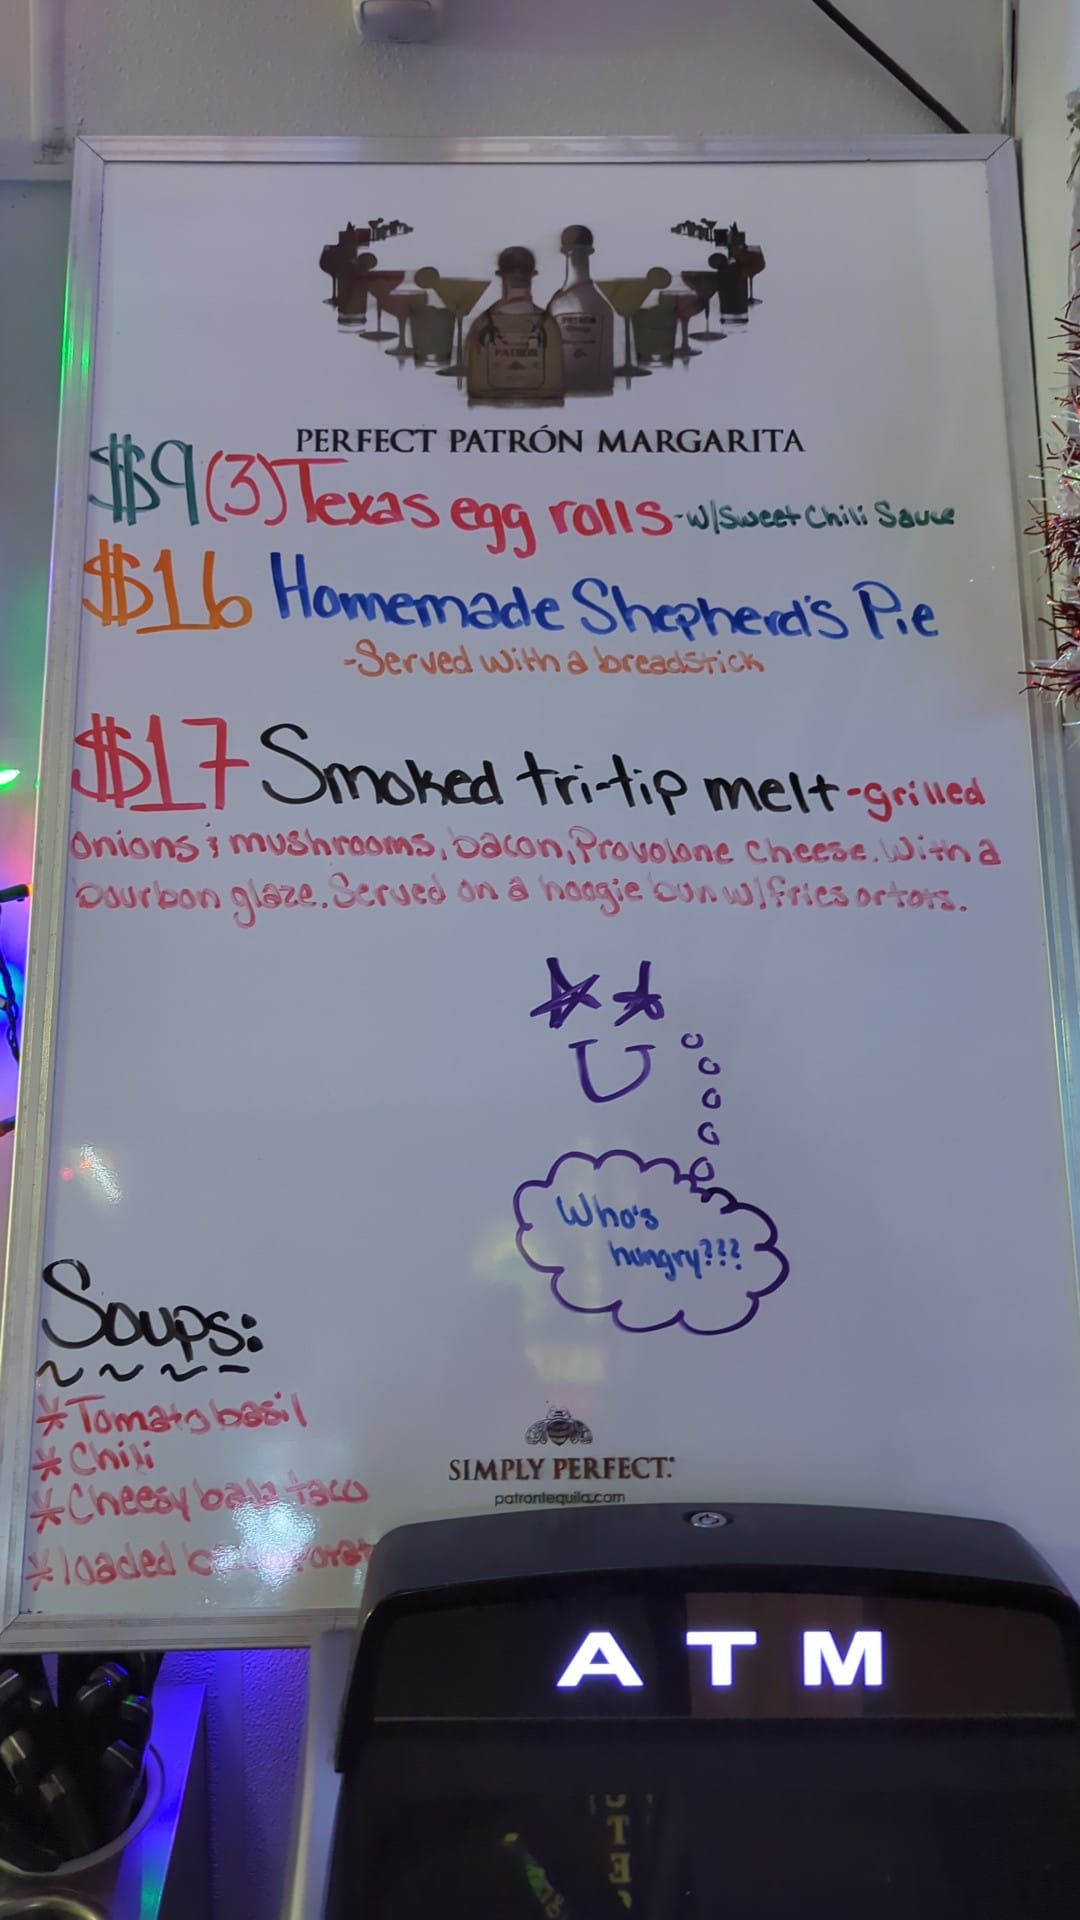 PATRÓN
PATRÓN
PERFECT PATRÓN MARGARITA
$9 (3) Texas egg rolls - w/Sweet Chili Sauce
$16 Homemade Shepherd's Pie
- Served with a breadstick
$17 Smoked tri-tip melt - grilled
onions & mushrooms, bacon, Provolone cheese. With a
bourbon glaze. Served on a hoagie bun w/fries or tots.
Who's
hungry???
Soups:
* Tomato basil
* Chili
* Cheesy taco
* loaded
SIMPLY PERFECT.
patrontequila.com
ATM